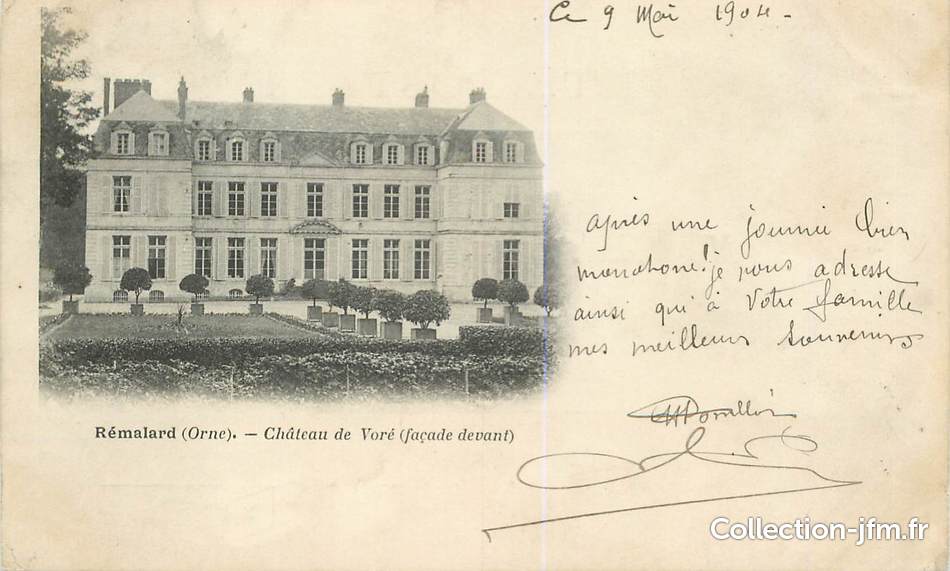 Ce 9 Mai 1904.
après une journée bien
monotone! je vous adresse
ainsi qu'à votre famille
mes meilleurs souvenirs
Rémalard (Orne). — Château de Voré (façade devant)
Collection-jfm.fr